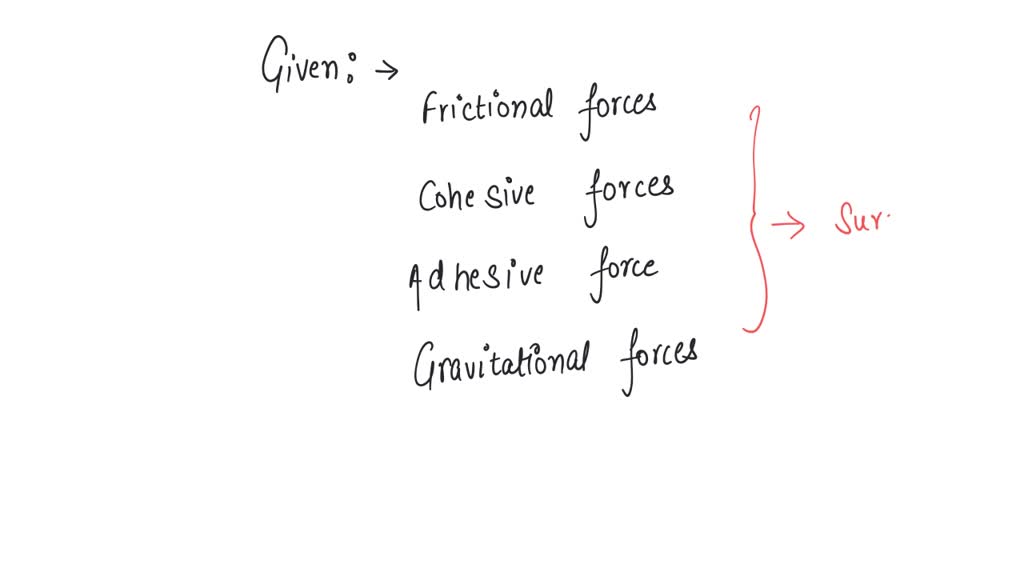 Given: →
Frictional forces
Cohesive forces
Adhesive force
Gravitational forces
→ Sur.